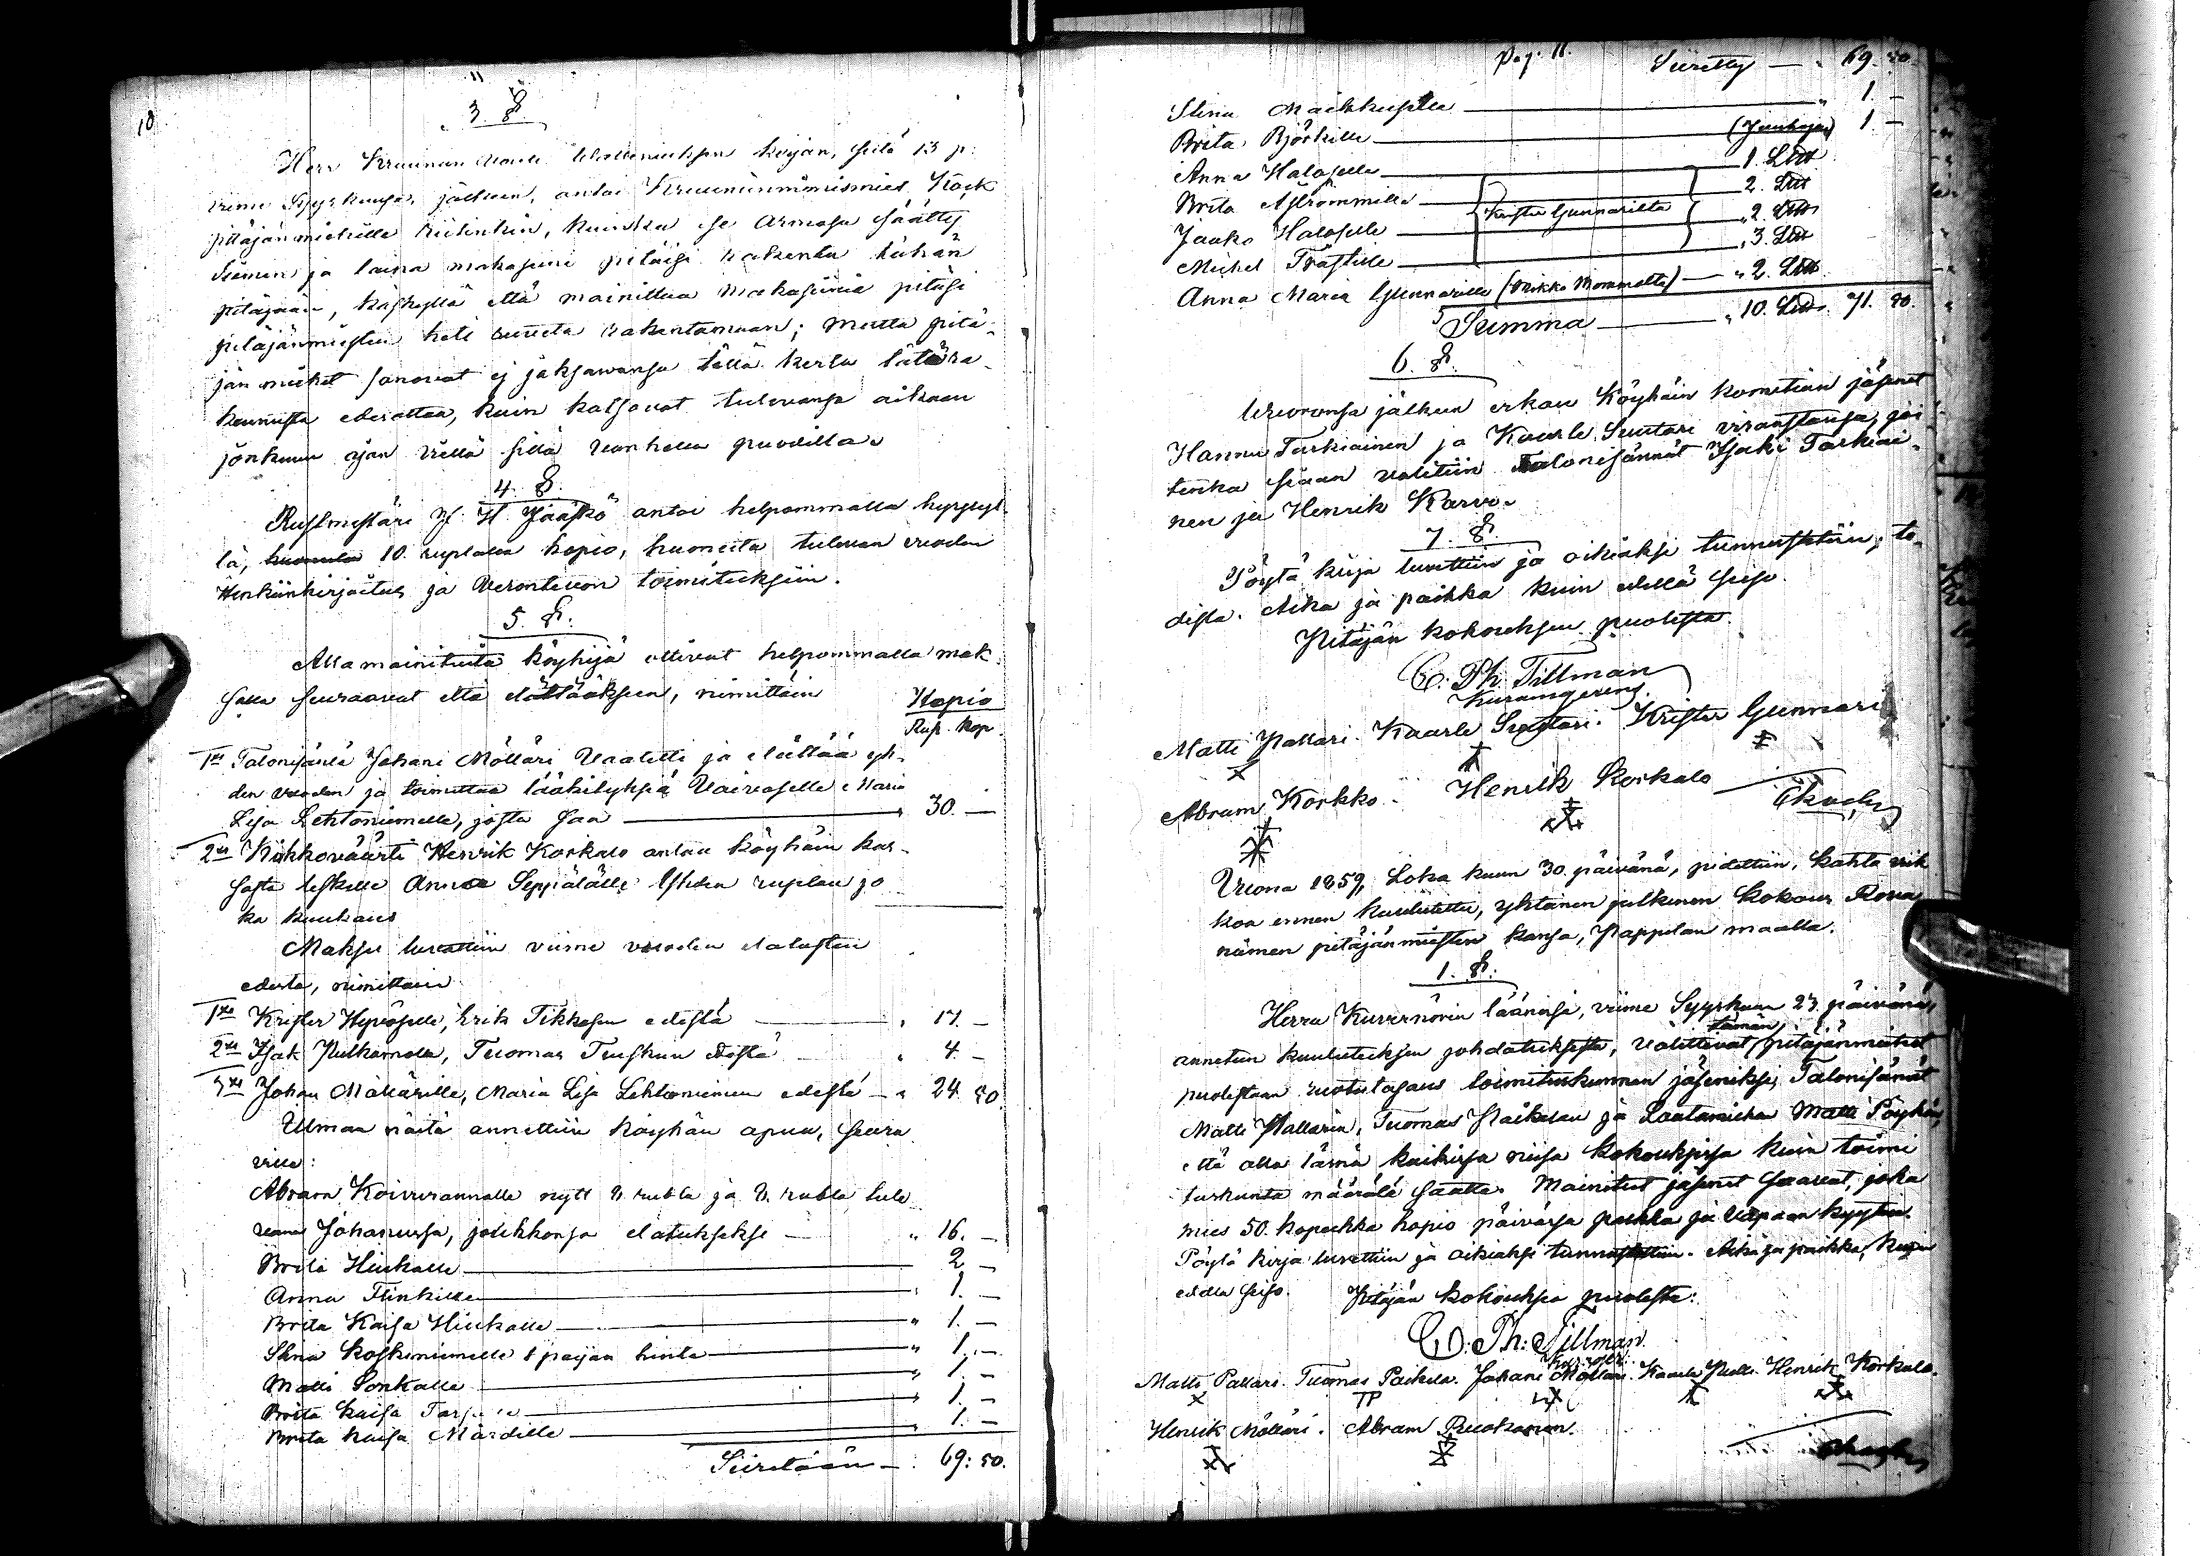 10
3. §.
Herr Kruunun Vouti kirjan, siitä 13 p:
viime Syyskuusa, jälkeen, antoi Kruununnimismies Kock
pitäjänmiehille tiedon, kuinka se Armosa säätty
Siemen ja laina makasiini pitäisi rakenta tähän
pitäjään, käskyllä että mainittua makasiinia pitäisi
pitäjänmiesten heti ruveta rakentamaan; mutta pitä-
jän miehet sanovat ej jaksawansa tällä kerta tätä ra-
kennusta edesauttaa, kuin katsovat tulevansa aikaan
jonkuun ajan vielä sillä vanhalla puodilla.
4. §.
Rustmestari H. Jääskö antoi helpommalla hyyryl-
lä, 10. ruplalla hopio, huoneita tulevan vuoden
Henkiinkirjoitus ja Verontevon toimituksiin.
5. §.
Alla mainituita köyhijä ottivat helpommalla mak-
salla seuraavat että elättääksen, nimittäin
Hopio
Rup. kop.
1ksi Talonisäntä Johani Möllari Vaatetti ja elättää yh-
den vuoden ja toimittaa lääkityksiä Vaivaselle Maria
Lisa Lehtoniemelle, josta saa 30. —
2ksi Kirkkovääriti Henrik Korkalo antaa köyhäin kas-
sasta leskelle Anna Seppälälle Yhden ruplan jo
ka kuukaus
Maksu luvattiin viime vuoden elatusten
edestä, nimittäin
1ksi Krister Hyvöselle, Erik Tikkasen edestä " 17. —
2ksi Isak Pulkamolle, Tuomas Tuiskun edestä " 4. —
3ksi Johan Möllärille, Maria Lisa Lehtoniemen edestä — " 24. 50.
Ilman näitä annettiin köyhän apua, seura
ville:
Abram Koivurannalle nytt 8. rubla ja 8. rubla tule
vana Johanusa, joukkonsa elatukseksi — " 16. —
Brita Hiukalle 2. —
Anna Flinkille 1. —
Brita Kaisa Hiukalle " 1. —
Stina Koskiniemelle paijan hinta " 1. —
Matti Sonkalle " 1. —
Brita Kaisa 1. —
Brita Kaisa Märdille 1. —
Siiretään — 69: 50.
Pag. 11. Siiretty — " 69. 50.
Stina Maikkuselle " 1. —
Brita Björkille (Jauhoja) 1. —
Anna Halosella 1. Litt
Brita Åströmmille 2. Litt
Krister Gunnarilta
Jaako Halosele " 2. Litt
Michel Tråstille " 3. Litt
Anna Maria Gunnarille (Mikko Mommolta) — " 2. Litt
Summa " 10. Litt. 71. 50.
6. §.
Wuoronsa jälkeen erkani Köyhäin komitean jäsenet
Hannu Tarkiainen ja Kaarle Suutari virastansa, joi
tenka siaan valitiin Talonisännät Isaki Tarkiai-
nen ja Henrik Karvo.
7. §.
Pöytä kirja luvettiin ja oikiaksi tunnustettiin; to-
distaa. Aika ja paikka kuin edellä seiso.
Pitäjän kokouksen puolesta
C. Ph: Tillman
Matti Pallari. Kaarle Suutari. Krister Gunnari
Abram Korkko. Henrik Korkalo
Vuona 1859, Loka kuun 30. päivänä, pidettiin, kahta vik
koa ennen kuulutettu, yhtänen julkinen kokous Rova
niämen pitäjänmiesten kansa, Pappilan maalla.
1. §.
Herra Kuvernörin läänisä, viime Syyskuun 23. päivänä,
annetun kuulutuksen johdatuksesta, valittevat tämän pitäjänmiehet
puolestaan ruotutasaus toimituskunnan jäseniksi, Talonisännät
Matti Pallarin, Tuomas Paikalan ja Lautamiehen Matti Pöyhön,
että olla läsnä kaikisa niisa kokouksisa kuin toimi
tuskunta määrätä saatta. Mainitut jäsenet saavat, joka
mies 50. kopeekka hopio päiväsä palkka ja vapaan kyytin.
Pöytä kirja luvettiin ja oikiaksi tunnustettiin. Aika ja paikka, kuin
edellä seiso. Pitäjän kokouksen puolesta:
C. Ph: Tillman.
Matti Pallari. Tuomas Paikala. Johani Möllari. Kaarle Henrik Korkalo.
Henrik Möllari. Abram Ruokanen.